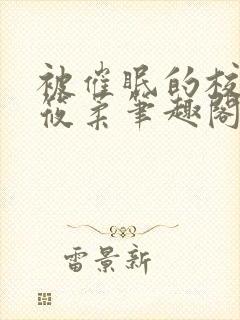 被催眠的校
筱柔笔趣阁
雷景新